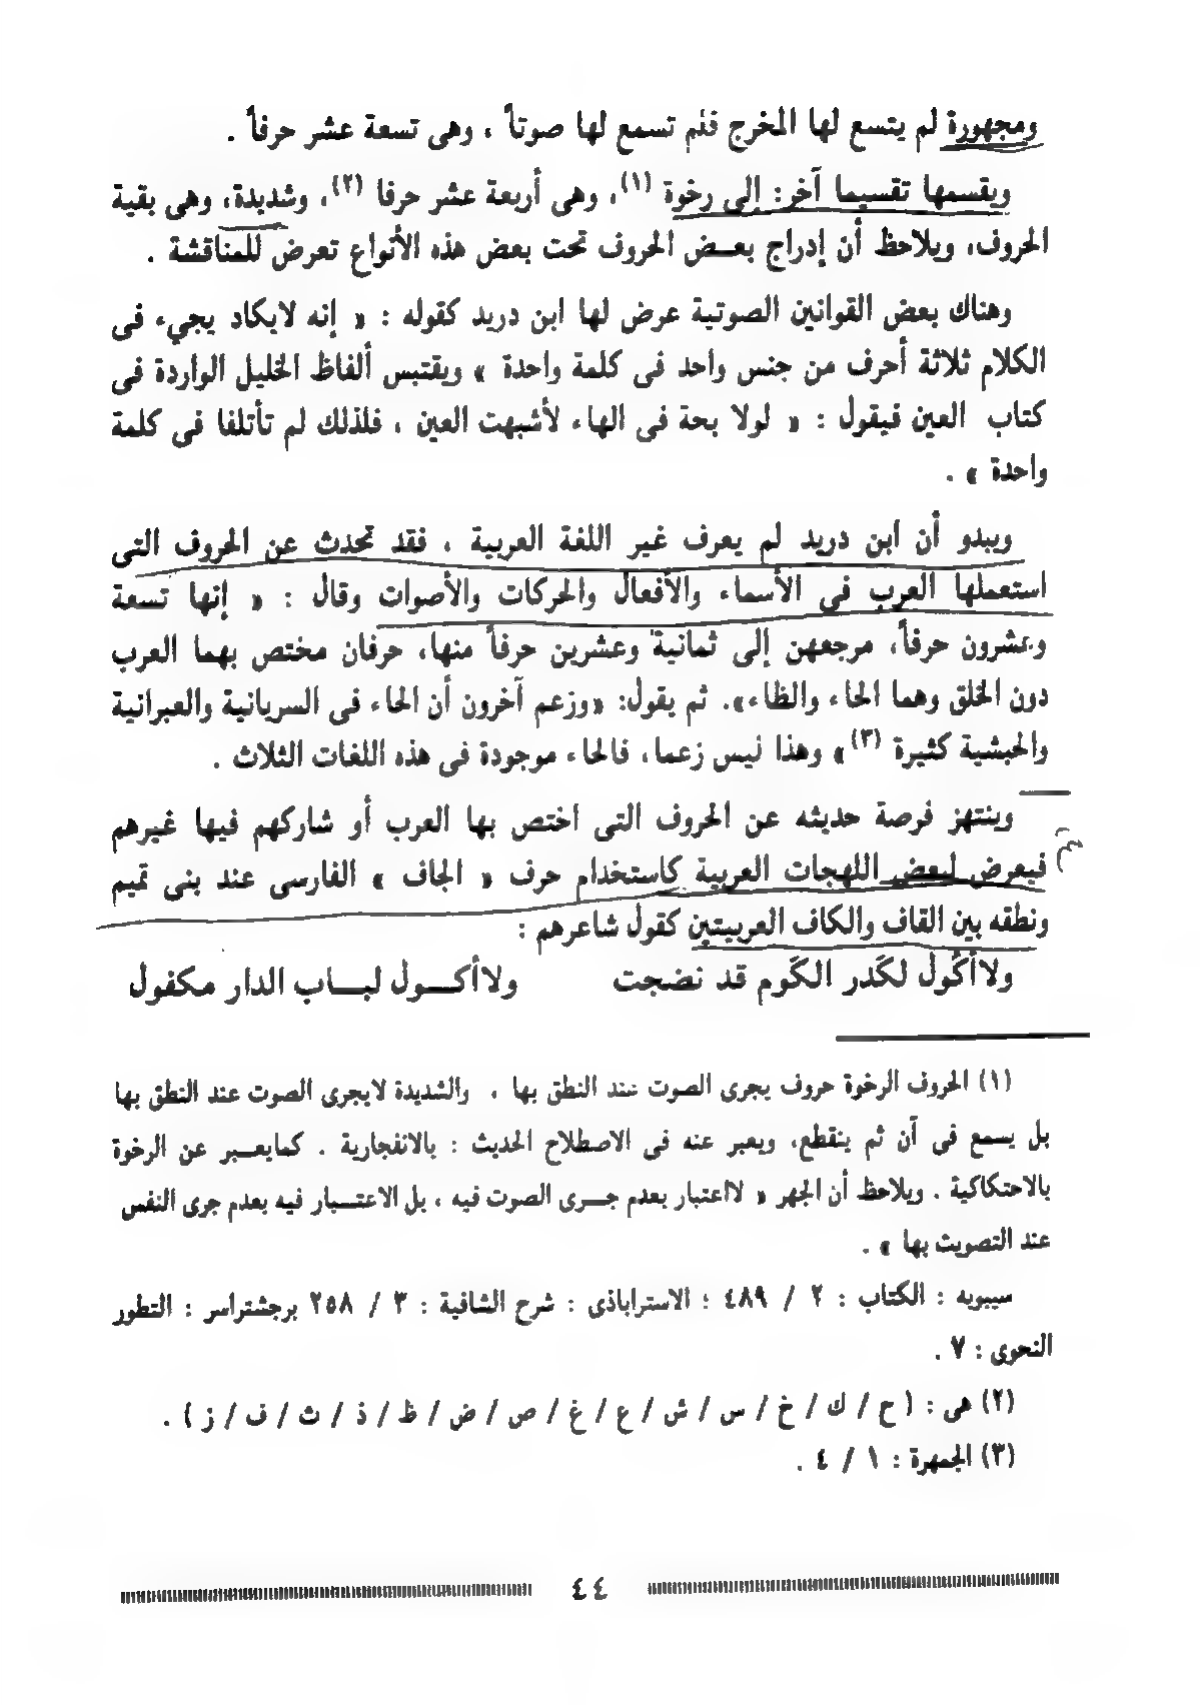 ومجهورة لم يتسع لها المخرج فلم تسمع لها صوتاً ، وهى تسعة عشر حرفاً .
ويقسمها تقسيما آخر: إلى رخوة (١)، وهى أربعة عشر حرفا (٢)، وشديدة، وهى بقية
الحروف، ويلاحظ أن إدراج بعـض الحروف تحت بعض هذه الأنواع تعرض للمناقشة .
وهناك بعض القوانين الصوتية عرض لها ابن دريد كقوله : « إنه لايكاد يجيء فى
الكلام ثلاثة أحرف من جنس واحد فى كلمة واحدة » ويقتبس ألفاظ الخليل الواردة فى
كتاب العين فيقول : « لولا بحة فى الهاء لأشبهت العين ، فلذلك لم تأتلفا فى كلمة
واحدة » .
ويبدو أن ابن دريد لم يعرف غير اللغة العربية ، فقد تحدث عن الحروف التى
استعملها العرب فى الأسماء والأفعال والحركات والأصوات وقال : « إنها تسعة
وعشرون حرفاً، مرجعهن إلى ثمانية وعشرين حرفاً منها، حرفان مختص بهما العرب
دون الخلق وهما الحاء والظاء». ثم يقول: «وزعم آخرون أن الحاء فى السريانية والعبرانية
والحبشية كثيرة (٣)» وهذا ليس زعما، فالحاء موجودة فى هذه اللغات الثلاث .
وينتهز فرصة حديثه عن الحروف التى اختص بها العرب أو شاركهم فيها غيرهم
فيعرض لبعض اللهجات العربية كاستخدام حرف « الجاف » الفارسى عند بنى تميم
ونطقه بين القاف والكاف العربيتين كقول شاعرهم :
ولاأكَول لكَدر الكَوم قد نضجت ولاأكـول لبـاب الدار مكفول
(١) الحروف الرخوة حروف يجرى الصوت عند النطق بها ، والشديدة لايجرى الصوت عند النطق بها
بل يسمع فى آن ثم ينقطع، ويعبر عنه فى الاصطلاح الحديث : بالانفجارية . كمايعـبر عن الرخوة
بالاحتكاكية . ويلاحظ أن الجهر « لااعتبار بعدم جـرى الصوت فيه ، بل الاعتـبار فيه بعدم جرى النفس
عند التصويت بها » .
سيبويه : الكتاب : ٢ / ٤٨٩ ؛ الاستراباذى : شرح الشافية : ٣ / ٢٥٨ برجشتراسر : التطور
النحوى : ٧ .
(٢) هى : ( ح / ك / خ / س / ش / ع / غ / ص / ض / ظ / ذ / ث / ف / ز ) .
(٣) الجمهرة : ١ / ٤ .
٤٤